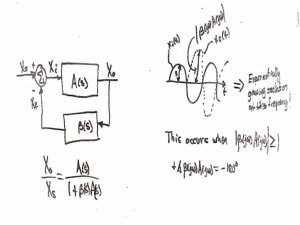 Xs
Σ
Xi
A(s)
Xo
Xf
β(s)
Xo/Xs = A(s)/(1+β(s)A(s))
|β(jω)A(jω)|
⇒ Exponentially
growing oscillation
at this frequency!
This occurs when |β(jω)A(jω)| ≥ 1
+∡β(jω)A(jω) = -180°